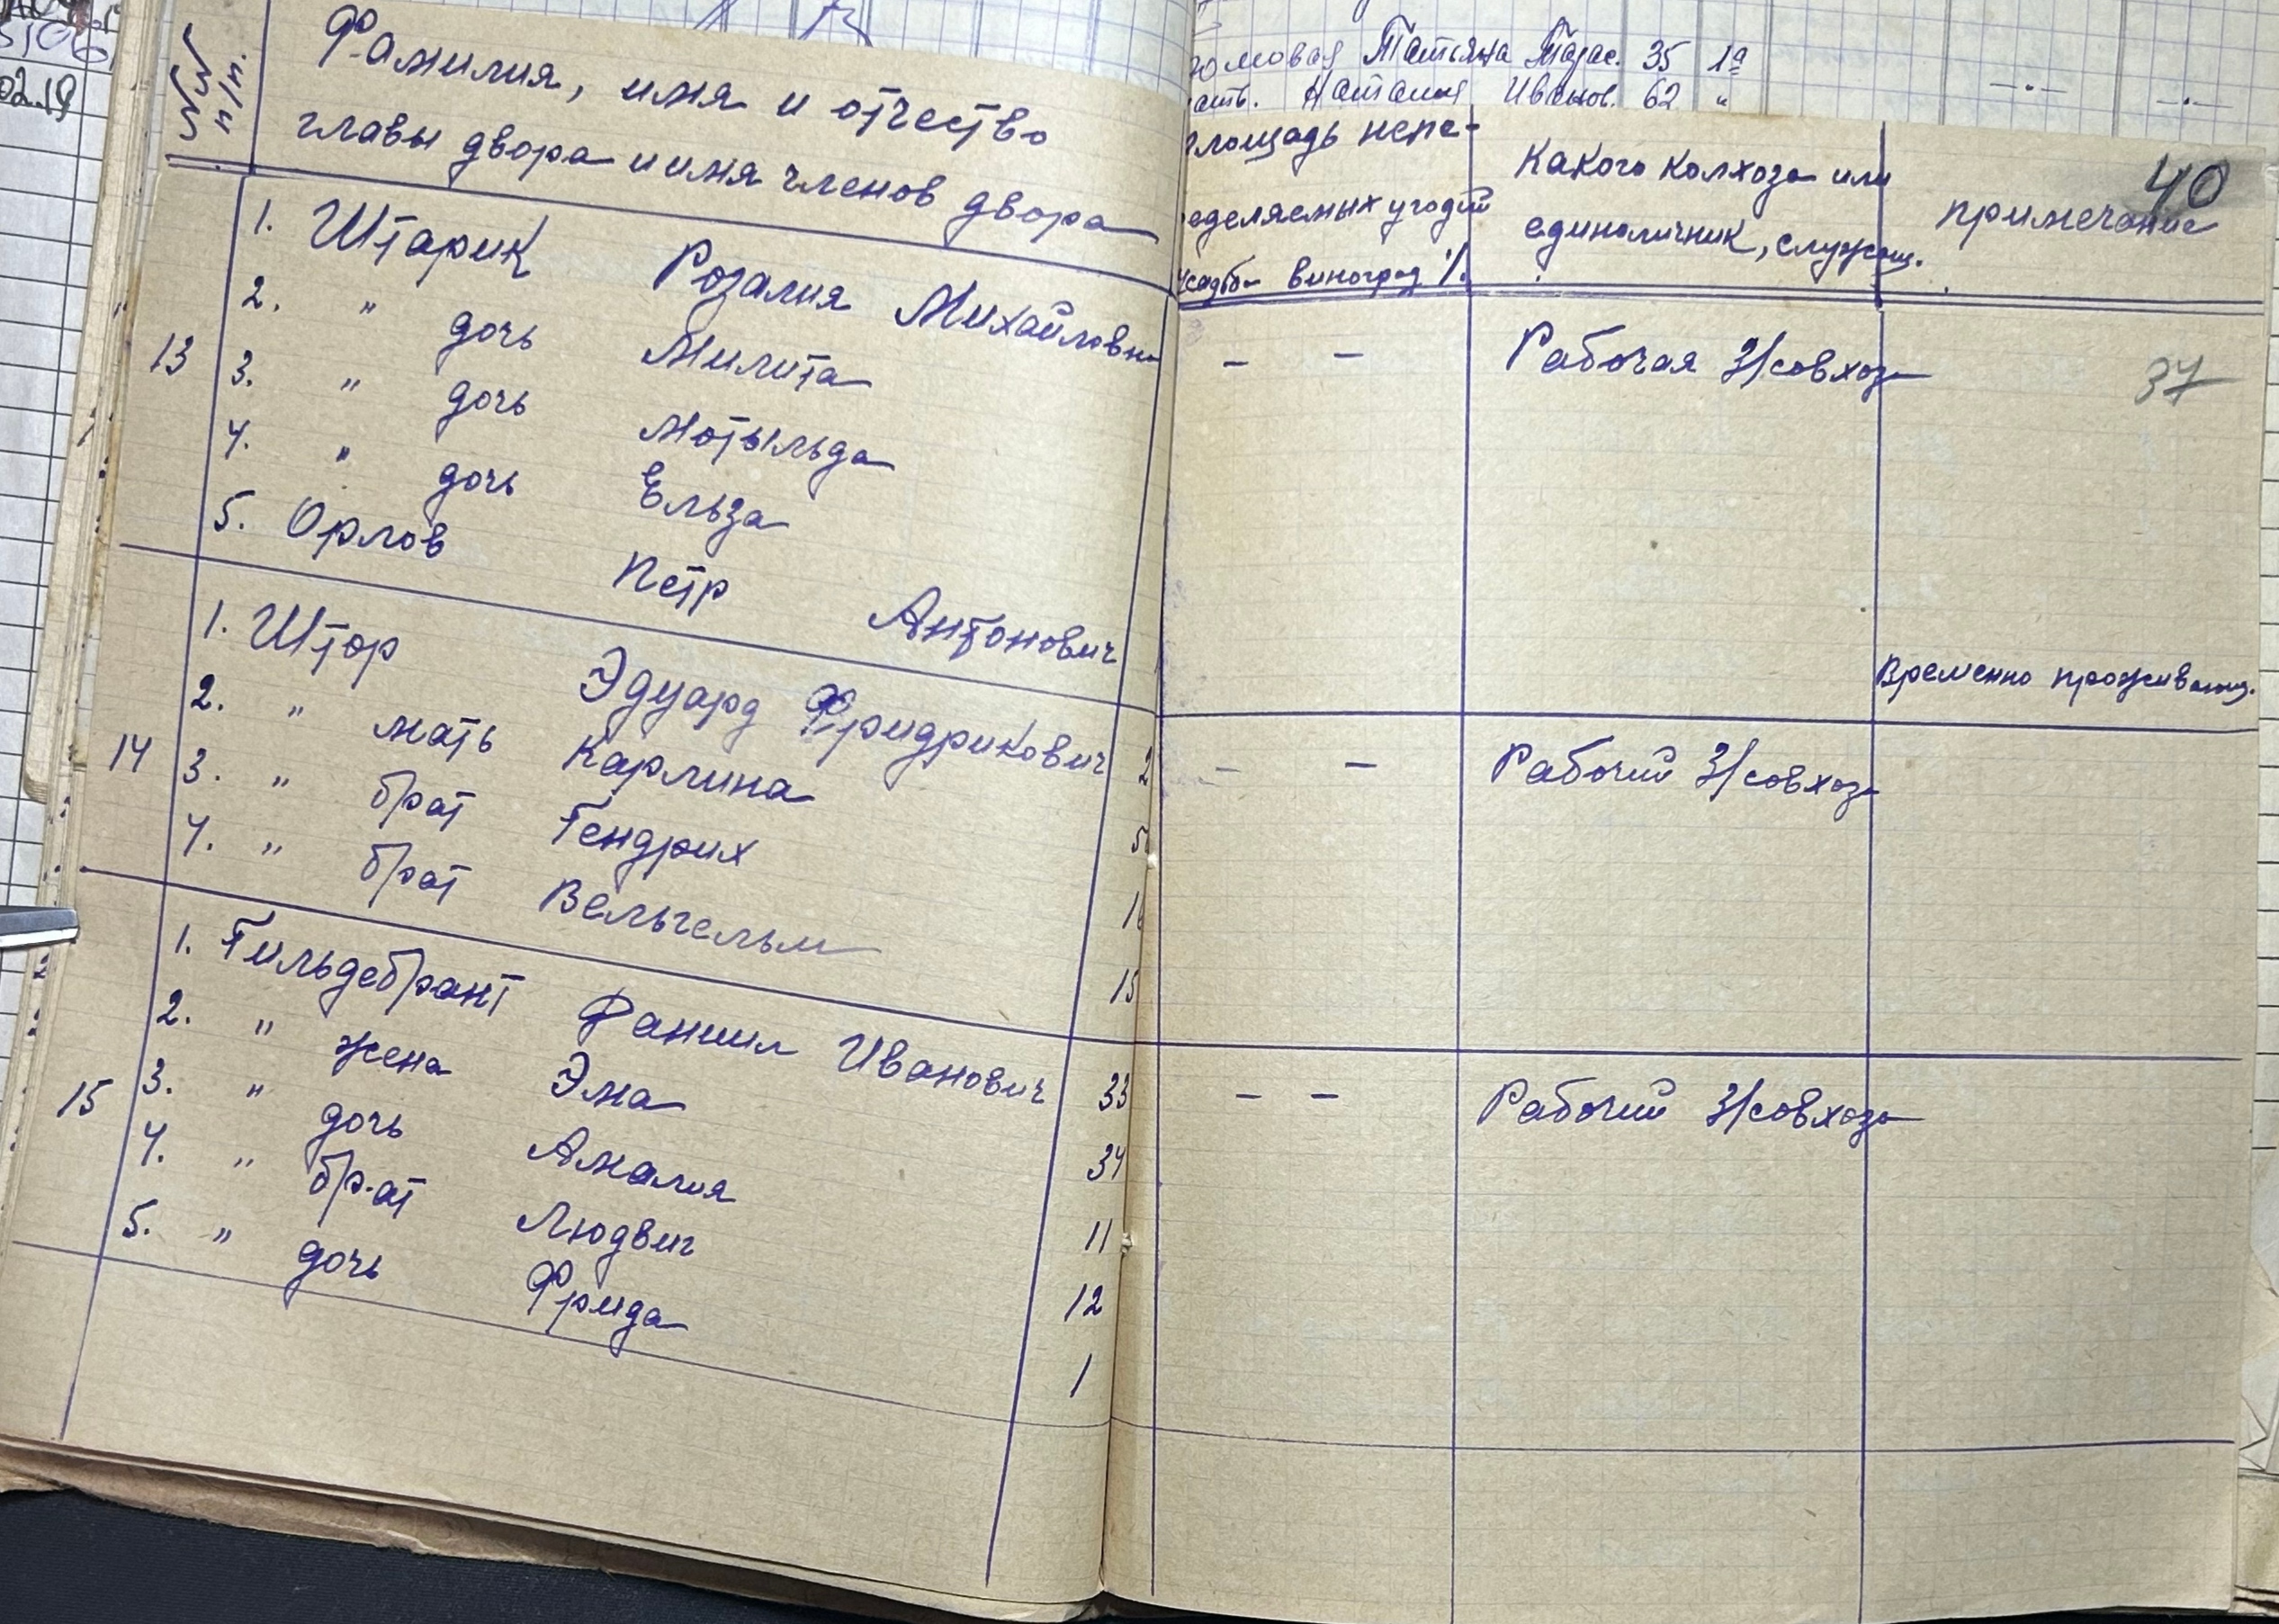 02.19
Татьяна 35 1а
Наталия Иванов. 62 "
№№ п/п.
Фамилия, имя и отчество
главы двора и имя членов двора
1. Штарик Розалия Михайловна
2. " дочь Милита
13 3. " дочь Мотыльда
4. " дочь Ельза
5. Орлов Петр Антонович
1. Штор Эдуард Фридрикович 2
2. " мать Карлина 5
14 3. " брат Гендрих 1
4. " брат Вельгельм 15
1. Гильдебрант Фаниил Иванович 33
2. " жена Эма 34
15 3. " дочь Амалия 11
4. " брат Людвиг 12
5. " дочь Фрида 1
площадь непе-
ределяемых угодий
усадьб виноград %
Какого колхоза или
единоличник, служащ.
40
примечание
- - Рабочая З/совхоза 37
Временно проживающ.
- - Рабочий З/совхоза
- - Рабочий З/совхоза